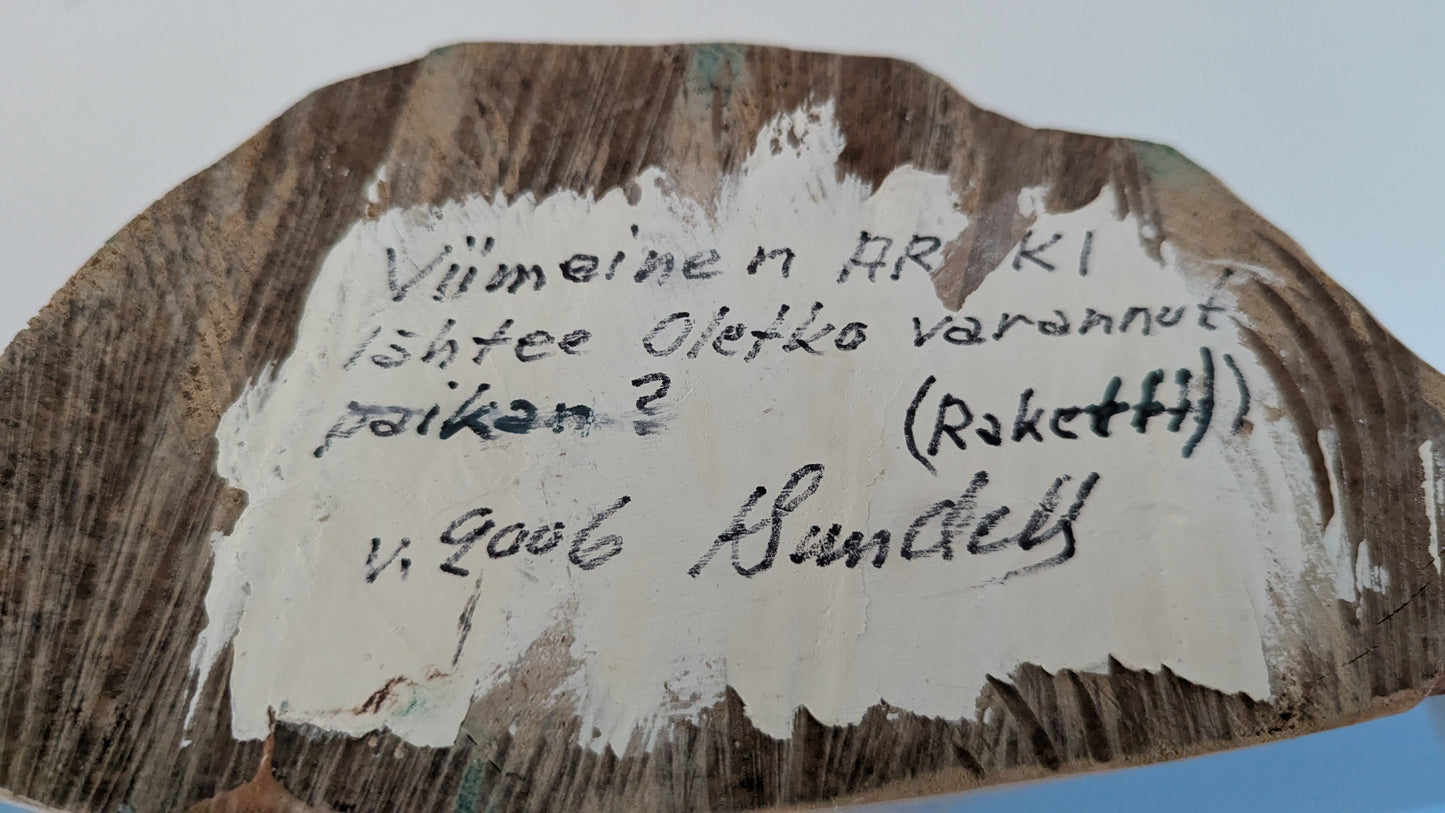 Viimeinen ARKKI
lähtee Oletko varannut
paikan? (Raketti)
v. 2006 Sundell